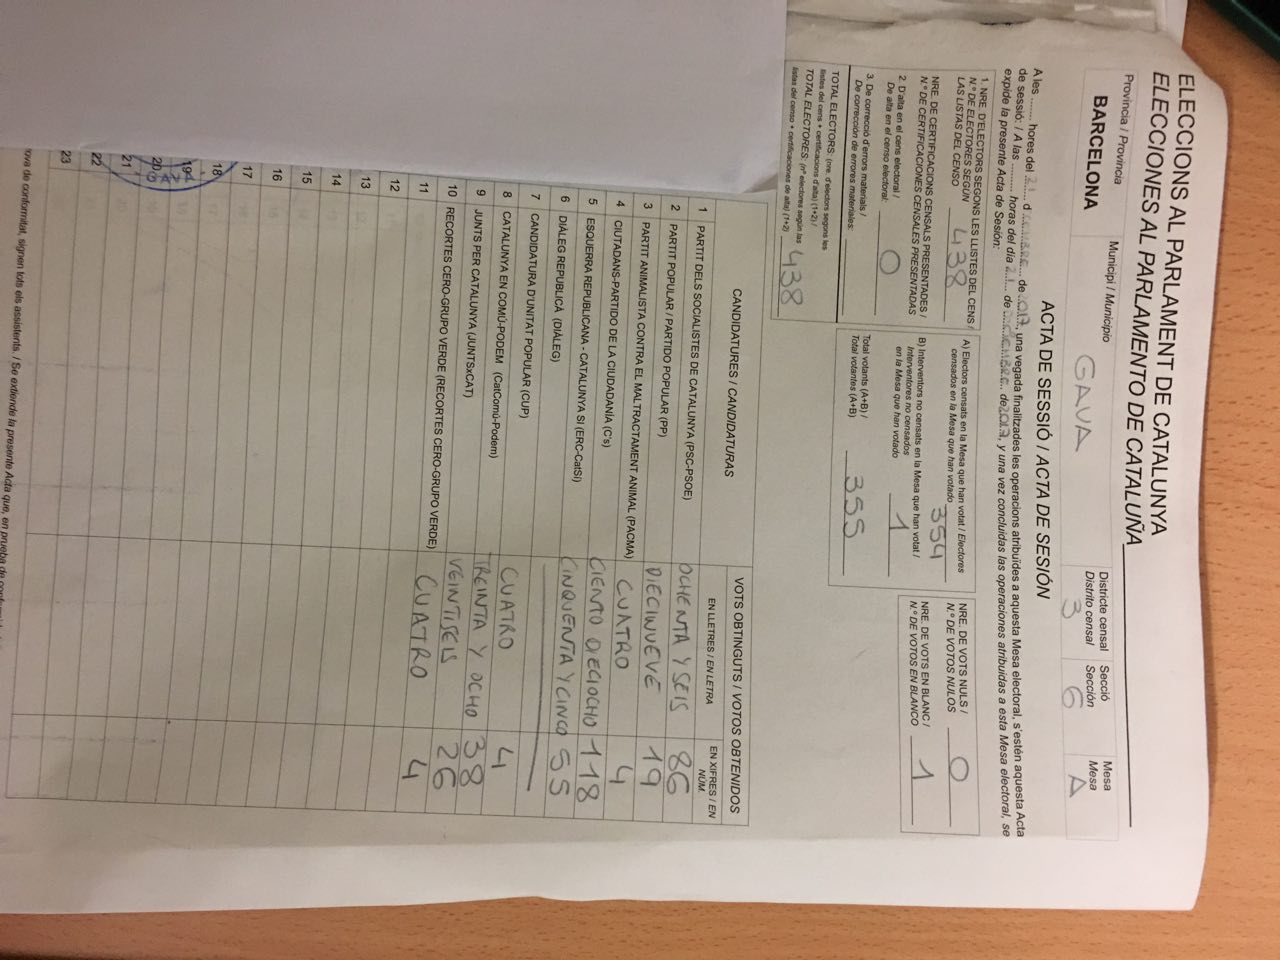 ELECCIONS AL PARLAMENT DE CATALUNYA
ELECCIONES AL PARLAMENTO DE CATALUÑA
Província / Provincia
BARCELONA
Municipi / Municipio
GAVA
Districte censal
Distrito censal
3
Secció
Sección
6
Mesa
Mesa
A
ACTA DE SESSIÓ / ACTA DE SESIÓN
A les ....... hores del 21 d DICIEMBRE de 2017, una vegada finalitzades les operacions atribuïdes a aquesta Mesa electoral, s'estén aquesta Acta
de sessió: / A las ......... horas del día 21 de DICIEMBRE de 2017, y una vez concluidas las operaciones atribuidas a esta Mesa electoral, se
expide la presente Acta de Sesión:
1. NRE. D'ELECTORS SEGONS LES LLISTES DEL CENS /
N.º DE ELECTORES SEGÚN
LAS LISTAS DEL CENSO 438
NRE. DE CERTIFICACIONS CENSALS PRESENTADES /
N.º DE CERTIFICACIONES CENSALES PRESENTADAS
2. D'alta en el cens electoral /
De alta en el censo electoral: 0
3. De correcció d'errors materials /
De corrección de errores materiales:
TOTAL ELECTORS: (nre. d'electors segons les
llistes del cens + certificacions d'alta) (1+2) /
TOTAL ELECTORES: (nº electores según las
listas del censo + certificaciones de alta) (1+2) 438
A) Electors censats en la Mesa que han votat / Electores
censados en la Mesa que han votado 354
B) Interventors no censats en la Mesa que han votat /
Interventores no censados
en la Mesa que han votado 1
Total votants (A+B) /
Total votantes (A+B) 355
NRE. DE VOTS NULS /
N.º DE VOTOS NULOS 0
NRE. DE VOTS EN BLANC /
N.º DE VOTOS EN BLANCO 1
CANDIDATURES / CANDIDATURAS
VOTS OBTINGUTS / VOTOS OBTENIDOS
EN LLETRES / EN LETRA
EN XIFRES / EN
NÚM.
1 PARTIT DELS SOCIALISTES DE CATALUNYA (PSC-PSOE) OCHENTA Y SEIS 86
2 PARTIT POPULAR / PARTIDO POPULAR (PP) DIECINUEVE 19
3 PARTIT ANIMALISTA CONTRA EL MALTRACTAMENT ANIMAL (PACMA) CUATRO 4
4 CIUTADANS-PARTIDO DE LA CIUDADANÍA (C's) CIENTO DIECIOCHO 118
5 ESQUERRA REPUBLICANA - CATALUNYA SÍ (ERC-CatSí) CINQUENTA Y CINCO 55
6 DIÀLEG REPUBLICÀ (DIÀLEG)
7 CANDIDATURA D'UNITAT POPULAR (CUP) CUATRO 4
8 CATALUNYA EN COMÚ-PODEM (CatComú-Podem) TREINTA Y OCHO 38
9 JUNTS PER CATALUNYA (JUNTSxCAT) VEINTISEIS 26
10 RECORTES CERO-GRUPO VERDE (RECORTES CERO-GRUPO VERDE) CUATRO 4
11
12
13
14
15
16
17
18
19
20
21
22
23
GAVA
ova de conformitat, signen tots els assistents. / Se extiende la presente Acta que, en prueba de